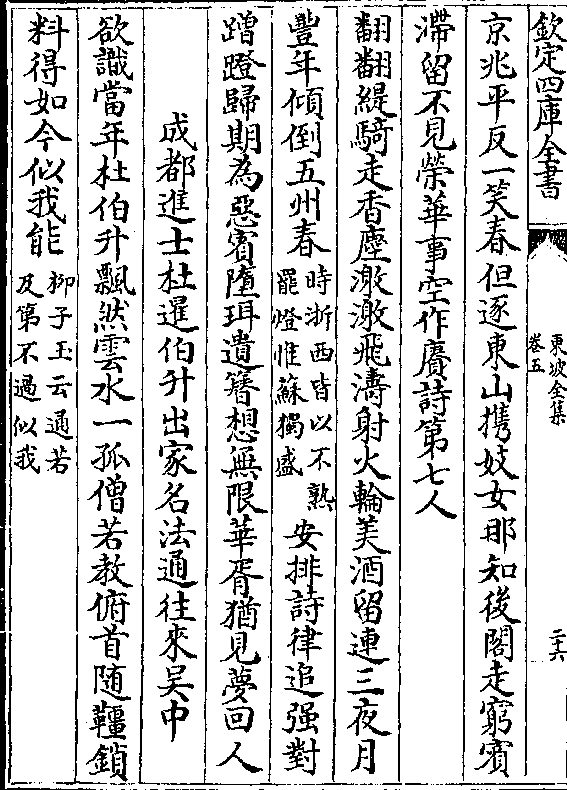 欽定四庫全書
東坡全集
卷五
二十六
京兆平反一笑春但逐東山攜妓女那知後閣走窮賓
滯留不見榮華事空作賡詩第七人
翻翻緹騎走香塵激激飛濤射火輪美酒留連三夜月
豐年傾倒五州春時浙西皆以不熟罷燈惟蘇獨盛安排詩律追强對
蹭蹬歸期為惡賓墮珥遺簪想無限華胥猶見夢回人
成都進士杜暹伯升出家名法通往來吳中
欲識當年杜伯升飄然雲水一孤僧若教俯首随韁鎖
料得如今似我能柳子玉云通若及第不過似我